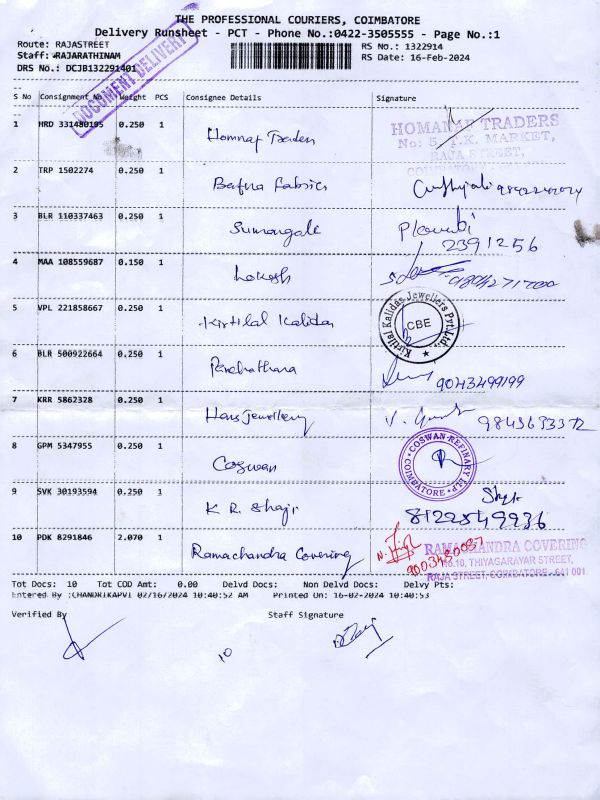 THE PROFESSIONAL COURIERS, COIMBATORE
Delivery Runsheet - PCT - Phone No.:0422-3505555 - Page No.:1
Route: RAJASTREET RS No.: 1322914
Staff: RAJARATHINAM RS Date: 16-Feb-2024
DRS No.: DCJB132291401
DOCUMENT DELIVERY
S No Consignment No Weight PCS Consignee Details Signature
1 HRD 331480195 0.250 1 Homnaf Traders
HOMANAF TRADERS
No: 5, T.K. MARKET,
RAJA STREET,
2 TRP 1502274 0.250 1 Bafna Fabrics
3 BLR 110337463 0.250 1 Sumangali
2391256
4 MAA 108559687 0.150 1 Lokesh
5 VPL 221858667 0.250 1 Kirtilal Kalidas
Kirtilal Kalidas Jewellers Pvt.Ltd.,
CBE
6 BLR 500922664 0.250 1
9043499199
7 KRR 5862328 0.250 1 Hans Jewellery
8 GPM 5347955 0.250 1 Coswan
COSWAN REFINARY LLP
COIMBATORE
9 SVK 30193594 0.250 1 K R Shaji
8122549936
10 PDK 8291846 2.070 1 Ramachandra Covering
RAMACHANDRA COVERING
No.10, THIYAGARAYAR STREET,
RAJA STREET, COIMBATORE - 641 001
Tot Docs: 10 Tot COD Amt: 0.00 Delvd Docs: Non Delvd Docs: Delvy Pts:
Entered By :CHANDRIKAPVI 02/16/2024 10:40:52 AM Printed On: 16-02-2024 10:40:53
Verified By Staff Signature
10